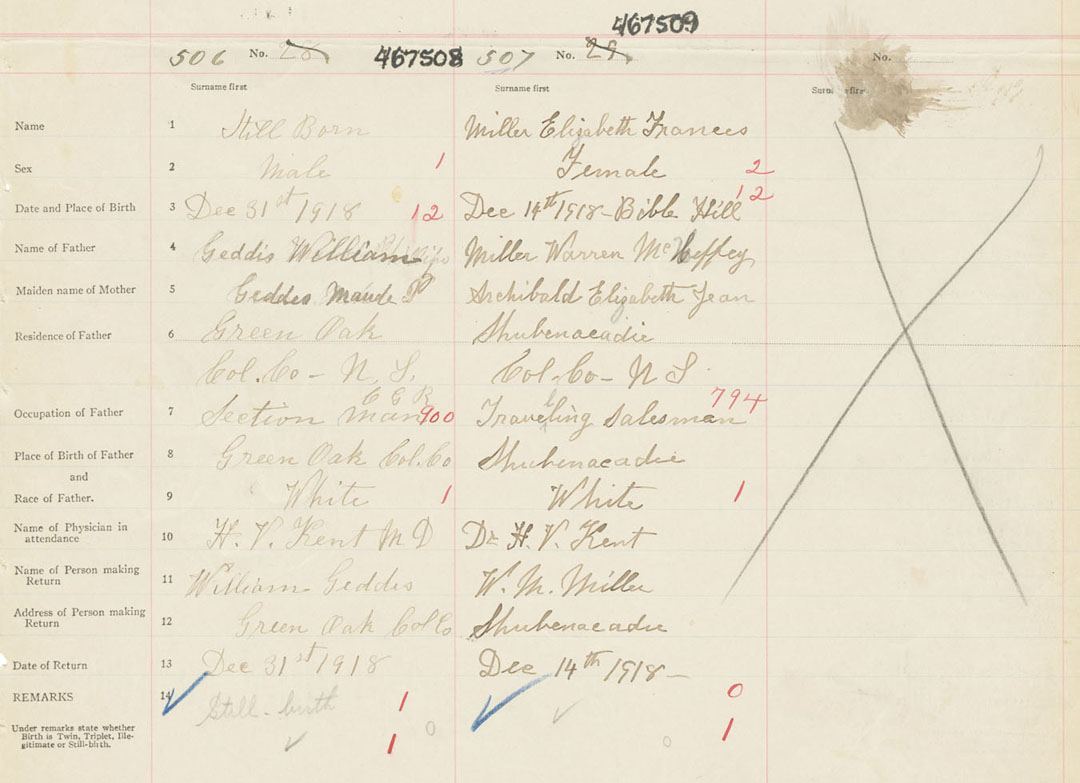 467509
506 No. 28 467508 507 No. 29 No.
Surname first Surname first
Name 1 Still Born Miller Elizabeth Frances
Sex 2 Male 1 Female 2
Date and Place of Birth 3 Dec 31st 1918 12 Dec 14th 1918 - Bible Hill 12
Name of Father 4 Geddis William Miller Warren McHeffey
Maiden name of Mother 5 Geddes Maude P Archibald Elizabeth Jean
Residence of Father 6 Green Oak Shubenacadie
Col. Co - N. S. Col. Co - N S
C G R 794
Occupation of Father 7 Section Man 900 Travelling Salesman
Place of Birth of Father 8 Green Oak Col. Co Shubenacadie
and
Race of Father. 9 White 1 White 1
Name of Physician in
attendance 10 H. V. Kent M D Dr H. V. Kent
Name of Person making
Return 11 William Geddis W. M. Miller
Address of Person making
Return 12 Green Oak Col Co Shubenacadie
Date of Return 13 Dec 31st 1918 Dec 14th 1918 -
REMARKS 14 Still-birth 1 0
Under remarks state whether
Birth is Twin, Triplet, Ille-
gitimate or Still-birth. 1 0 0 1